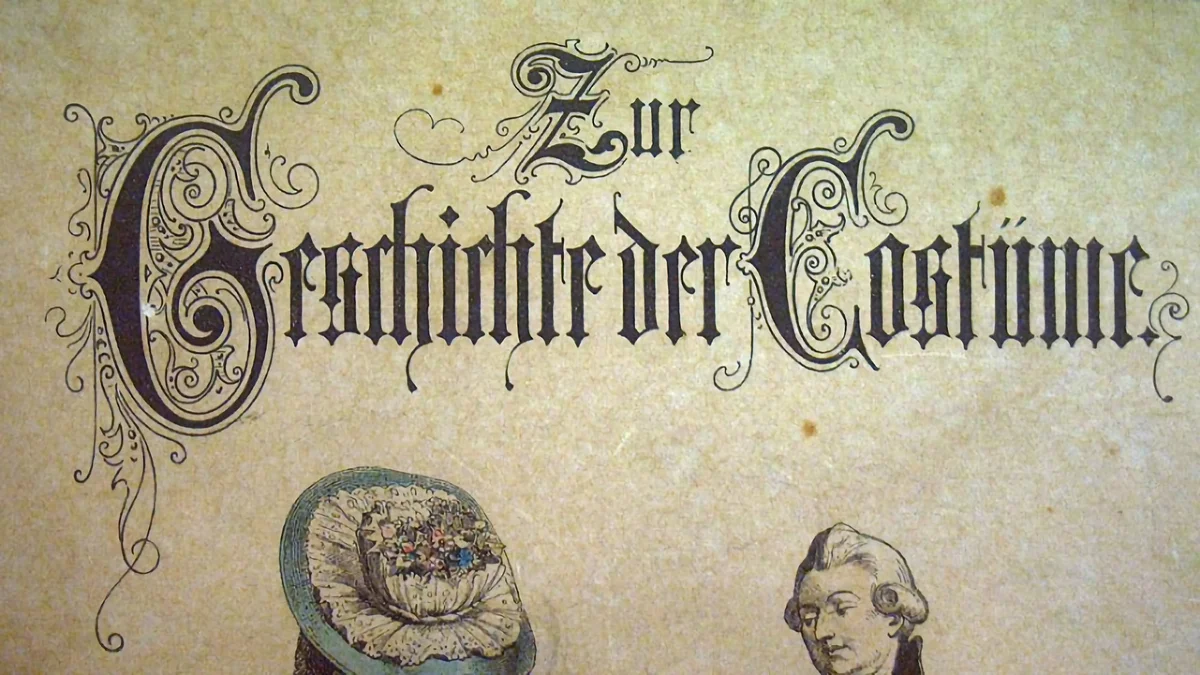 Zur
Geschichte der Costüme.